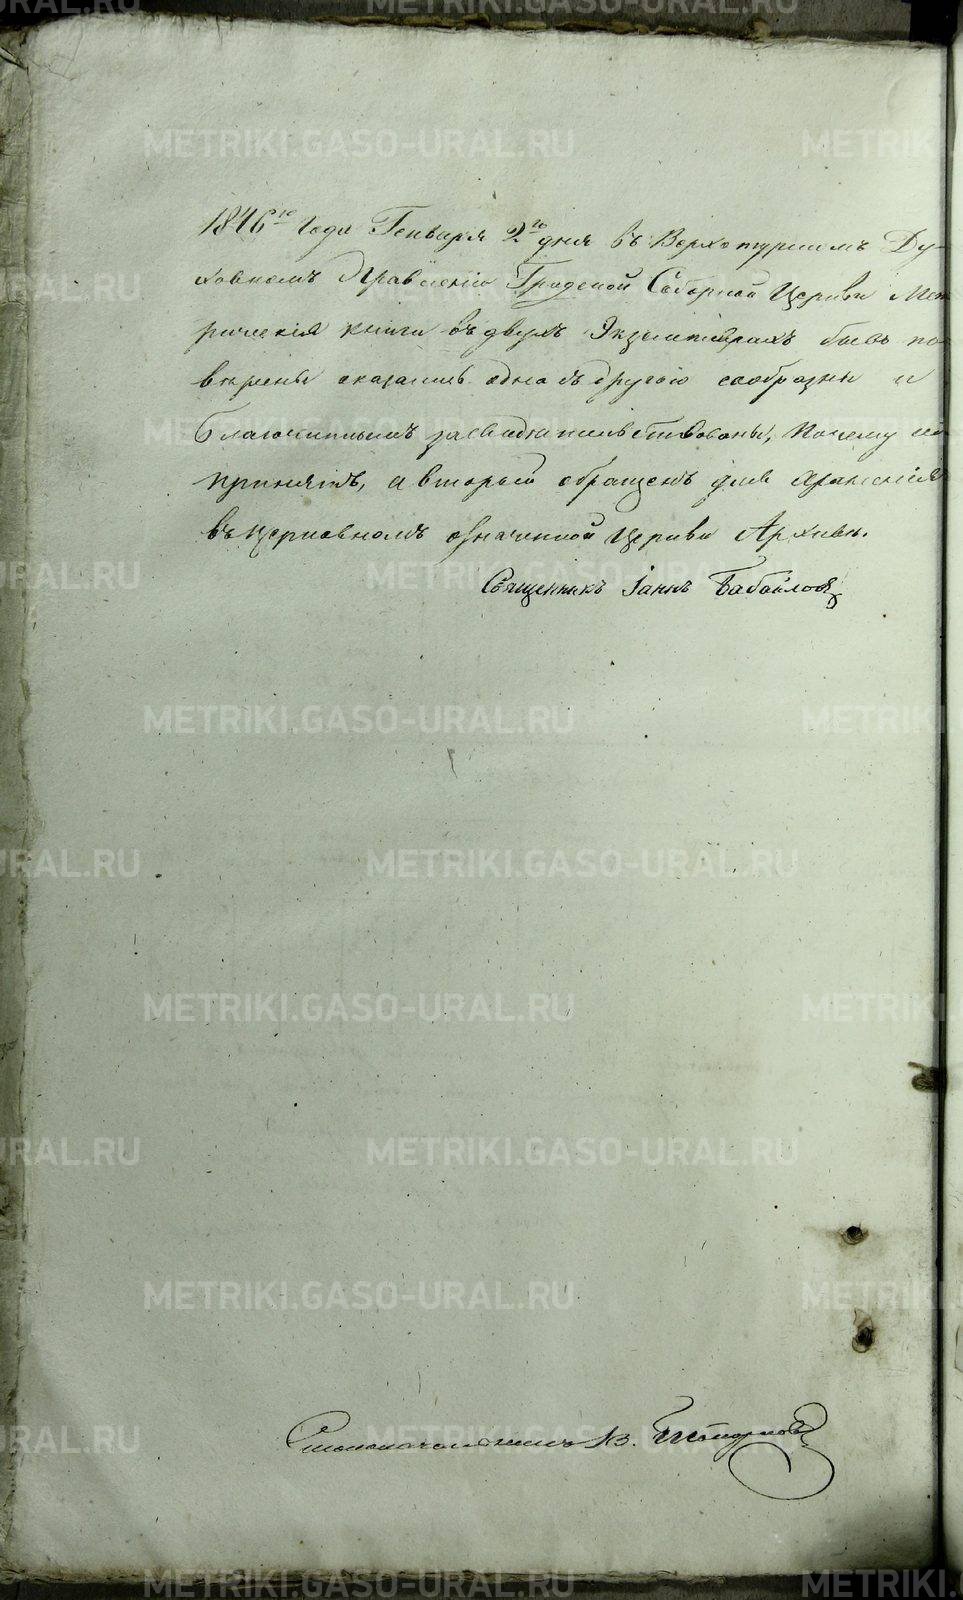 1846го Года Генваря 2го дня въ Верхотурскомъ Ду-
ховномъ Правленіи Градской Соборной Церкви Мет
рическія книги въ двухъ Экземплярахъ бывъ по
верены оказались одна съ другою сообразны и
благочиннымъ засвидетельствованы, Почему
принятъ, а вторый обращенъ для храненія
въ церковномъ означенной Церкви Архивѣ.
Священникъ Іаннъ Бабайлов
Столоначальникъ В.
METRIKI.GASO-URAL.RU